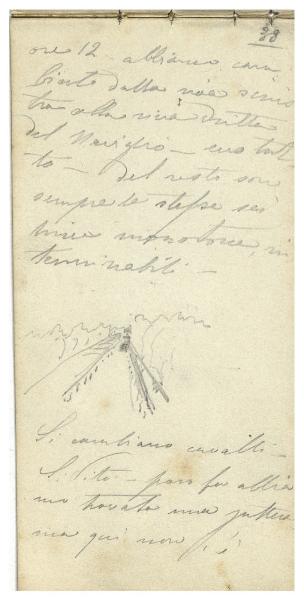 28
ore 12 - abbiamo cam
biato dalla riva sinis
tra alla riva dritta
del Naviglio - ecco tut
to - del resto son
sempre le stesse sei
linee monotone, in
terminabili -
Si cambiano cavalli -
S. Vito - poco fa abbia
mo trovato una
ma qui non c'è